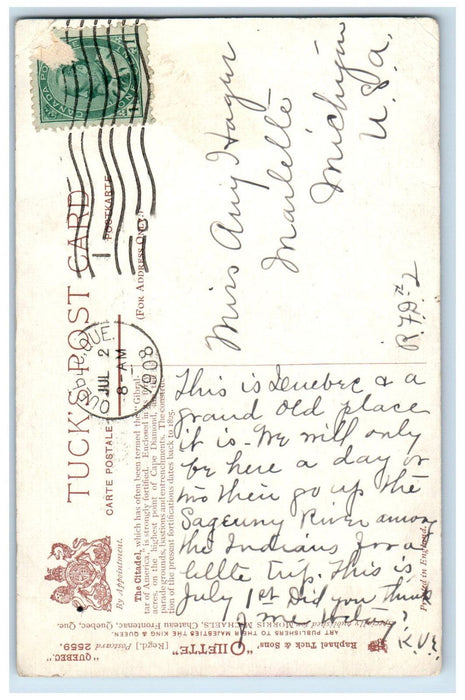 TUCK'S POST CARD
CARTE POSTALE
POSTKARTE
(FOR ADDRESS ONLY.)
QUEBEC, QUE
JUL 2
8-AM
1908
Miss Amy Hager
Marlette
Michigan
U.S.a.
R.F.D. #2
This is Quebec & a
grand old place
it is. We will only
be here a day or
two then go up the
Sagenny River among
the Indians for a
little trip. This is
July 1st Did you think
of me to-day?
The Citadel, which has often been termed the "Gibral-
tar of America," is strongly fortified. Enclosed in its 40
acres, on the highest point of Cape Diamond, are
parade grounds, bastions and entrenchments. The construc-
tion of the present fortifications dates back to 1825.
By Appointment.
Raphael Tuck & Sons' "OILETTE" [Regd.] Postcard 2659.
"QUEBEC"
ART PUBLISHERS TO THEIR MAJESTIES THE KING & QUEEN.
Specially published for MORRIS MICHAELS, Chateau Frontenac, Quebec, Que.
Printed in England.